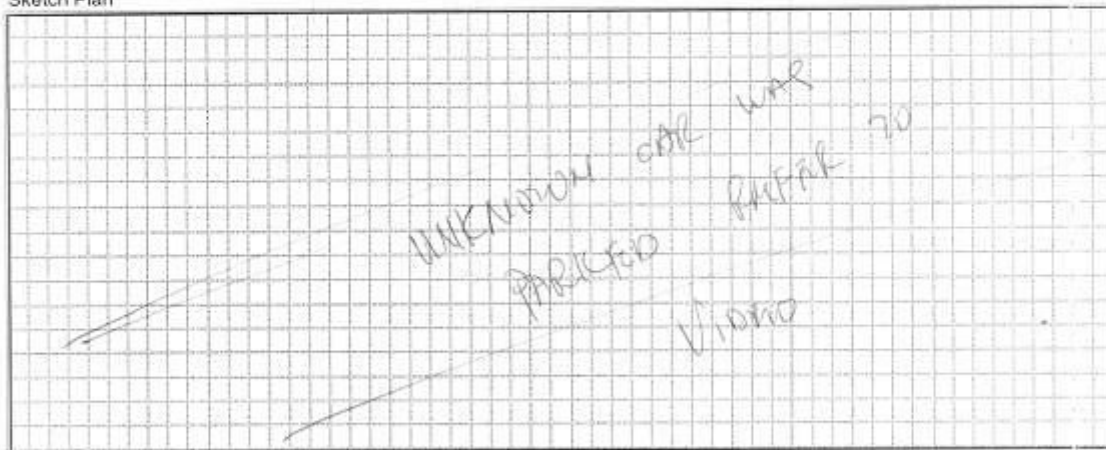 Sketch Plan
UNKNOWN CAR WAS
PARKED REFER TO
VIDEO